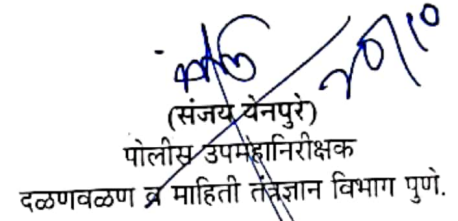 २०/१०
(संजय येनपुरे)
पोलीस उपमहानिरीक्षक
दळणवळण व माहिती तंत्रज्ञान विभाग पुणे.